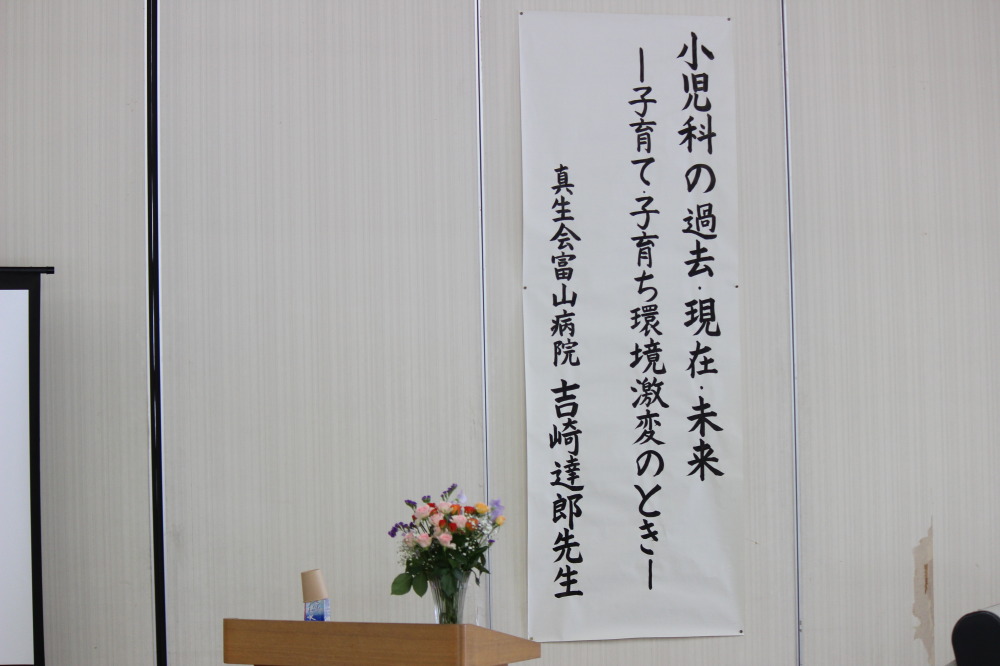 小児科の過去・現在・未来
ー子育て・子育ち環境激変のときー
真生会富山病院 吉崎達郎先生